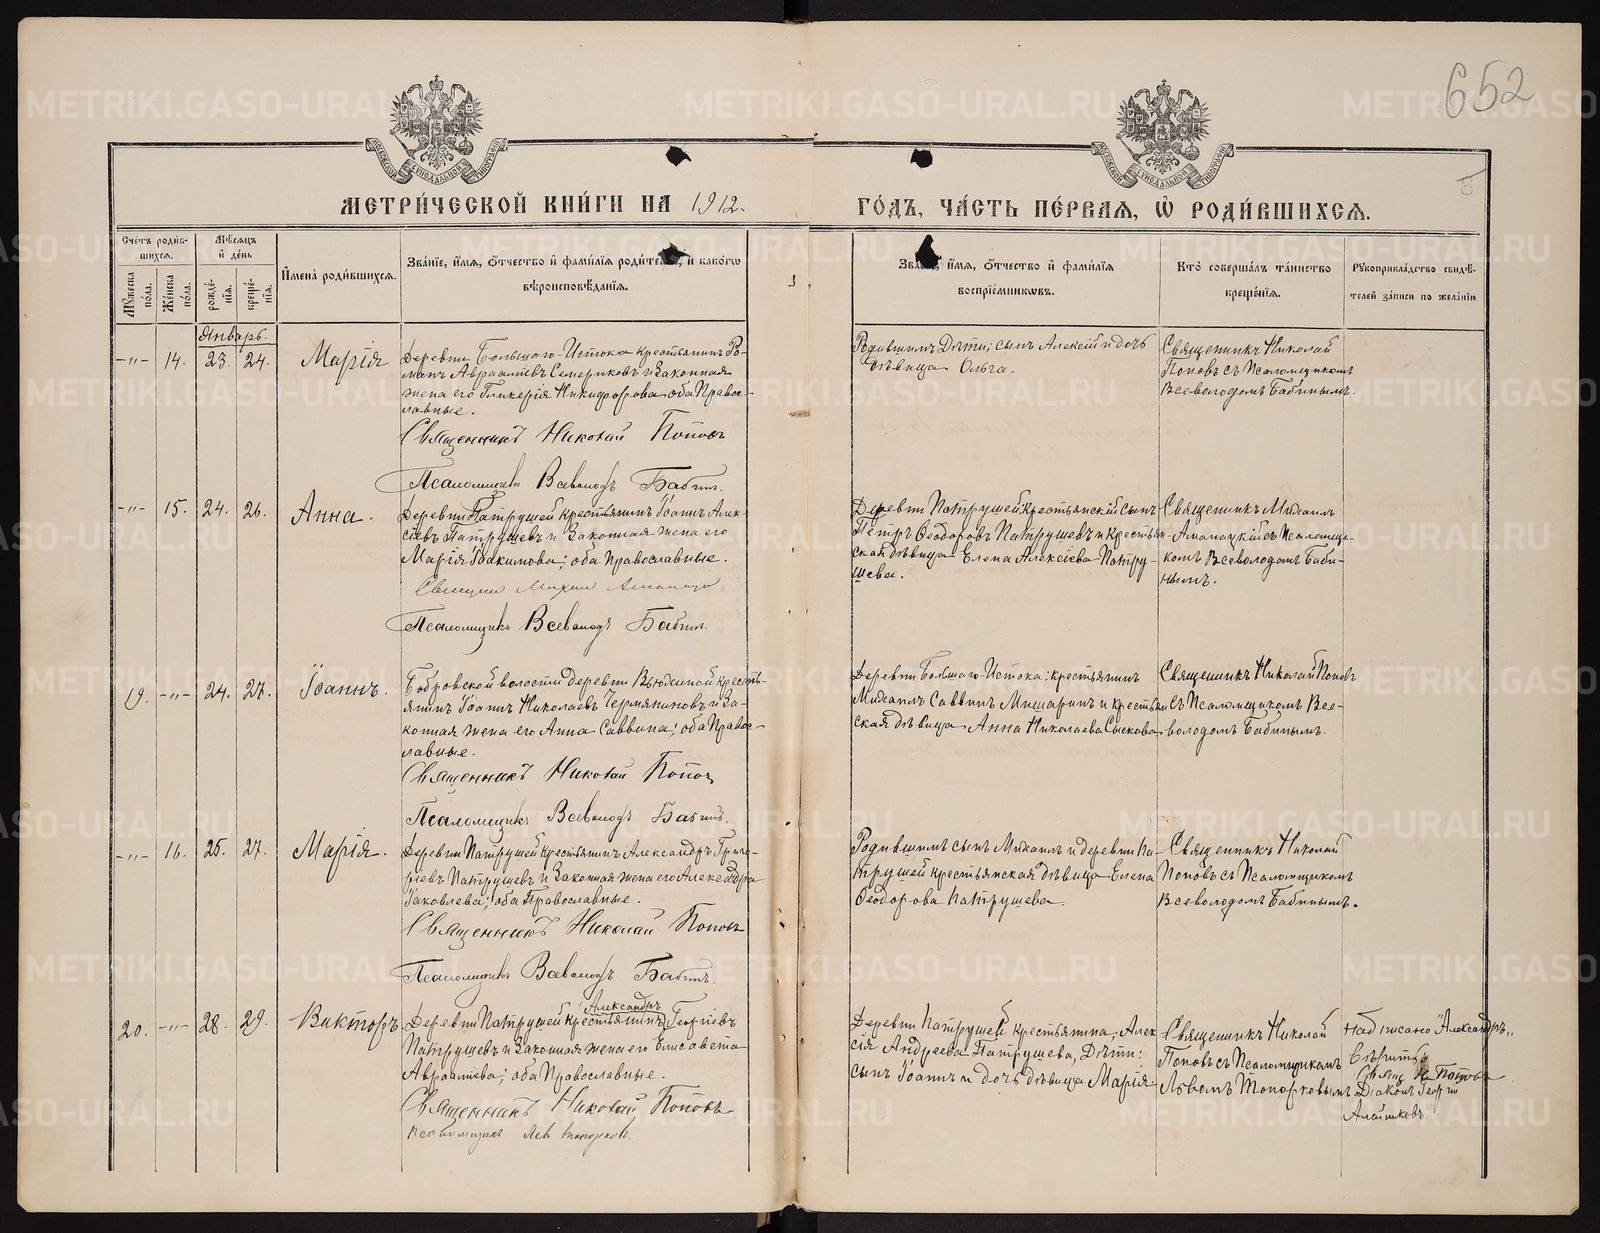 652
5
МЕТРИ́ЧЕСКОЙ КНИ́ГИ НА 1912.
ГО́ДЪ, ЧА́СТЬ ПЕ́РВАЯ, Ѡ҆ РОДИ́ВШИХСЯ.
Сче́тъ роди́в-
шихся.
Му́жеска по́ла.
Же́нска по́ла.
Мѣ́сяцъ
и҆ де́нь
рожде́-
нїя.
креще́-
нїя.
И҆мена̀ роди́вшихся.
Зва́нїе, и҆́мя, ѻ҆́тчество и҆ фами́лїя роди́телей, и҆ како́гѡ
вѣроисповѣ́данїя.
Зва́нїе, и҆́мя, ѻ҆́тчество и҆ фами́лїя
воспрїе́мникѡвъ.
Кто̀ соверша́лъ та́инство
креще́нїя.
Рꙋкоприкла́дство свидѣ́-
телей за́писи по жела́нїю
Январь.
-"- 14. 23. 24. Марія
Деревни Большого-Истока крестьянинъ Ро-
манъ Авраамiевъ Семериковъ и законная
жена его Гликерія Никифорова оба Право-
славные.
Священникъ Николай Поповъ
Псаломщикъ Всеволодъ Бабинъ.
Родившихъ Дѣти; сынъ Алексій и дочь
дѣвица Ольга.
Священникъ Николай
Поповъ съ Псаломщикомъ
Всеволодомъ Бабинымъ.
-"- 15. 24. 26. Анна.
Деревни Патрушей крестьянинъ Іоаннъ Алек-
сіевъ Патрушевъ и Законная жена его
Марія Іоакимова; оба Православные.
Псаломщикъ Всеволодъ Бабинъ.
Деревни Патрушей крестьянскій сынъ
Петръ Ѳеодоровъ Патрушевъ и крестьян-
ская дѣвица Елена Алексіева Патру-
шева.
Священникъ Михаилъ
съ Псаломщи-
комъ Всеволодомъ Баби-
нымъ.
19. -"- 24. 27. Іоаннъ.
Бобровской волости деревни Вьюхиной кресть-
янинъ Іоаннъ Николаевъ Чермяниновъ и За-
конная жена его Анна Саввина; оба Право-
славные.
Священникъ Николай Поповъ
Псаломщикъ Всеволодъ Бабинъ.
Деревни Большого-Истока: крестьянинъ
Михаилъ Саввинъ Мишаринъ и крестьян-
ская дѣвица Анна Николаева Сыскова
Священникъ Николай Поповъ
съ Псаломщикомъ Все-
володомъ Бабинымъ.
-"- 16. 25. 27. Марія.
Деревни Патрушей крестьянинъ Александръ Григо-
ріевъ Патрушевъ и Законная жена его Александра
Іаковлева; оба Православные.
Священникъ Николай Поповъ
Псаломщикъ Всеволодъ Бабинъ.
Родившихъ сынъ Михаилъ и деревни Па-
трушей крестьянская дѣвица Елена
Ѳеодорова Патрушева.
Священникъ Николай
Поповъ съ Псаломщикомъ
Всеволодомъ Бабинымъ.
20. -"- 28. 29. Викторъ
Александръ
Деревни Патрушей крестьянинъ Георгіевъ
Патрушевъ и Законная жена его Елисавета
Авраамiева; оба Православные.
Священникъ Николай Поповъ
Псаломщикъ Левъ Топорковъ.
Деревни Патрушей крестьянина, Алек
сія Андреева Патрушева, Дѣти:
сынъ Іоаннъ и дочь дѣвица Марія
Священникъ Николай
Поповъ съ Псаломщикомъ
Львомъ Топорковымъ
Надписано "Александръ"
вѣрить
Свящ. Н. Поповъ
Діаконъ Георгій